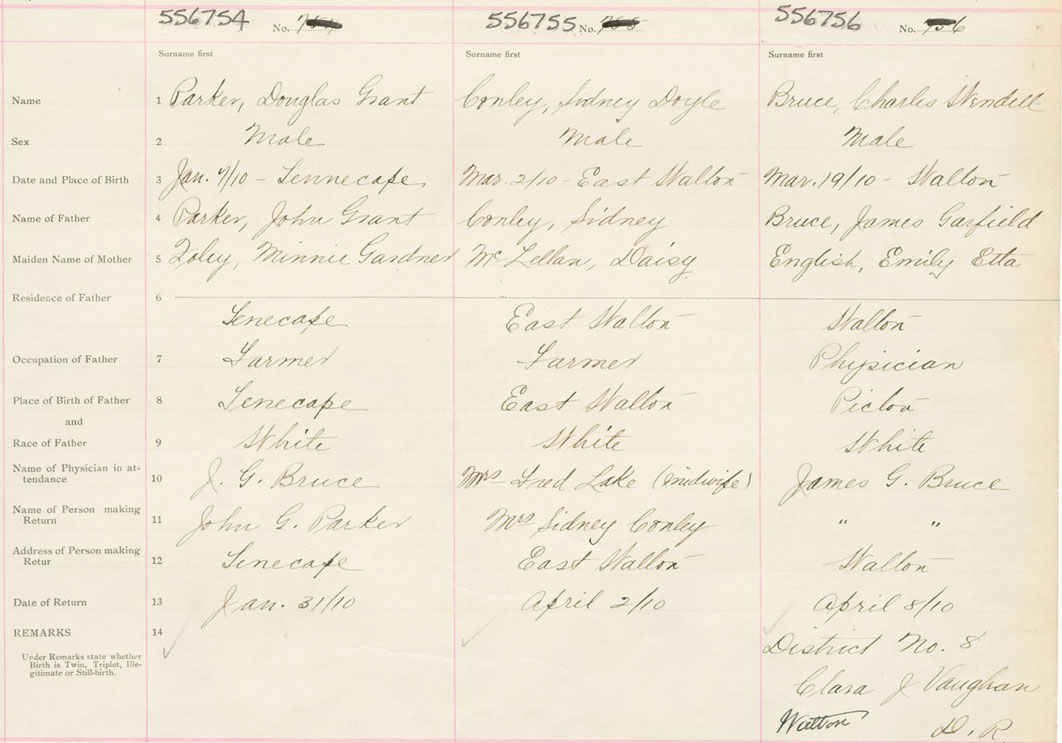 556754 No. 556755 No. 556756 No. 756
Surname first Surname first Surname first
Name 1 Parker, Douglas Grant Conley, Sidney Doyle Bruce, Charles Wendell
Sex 2 Male Male Male
Date and Place of Birth 3 Jan. 7/10 - Tennecape Mar. 2/10 - East Walton Mar. 19/10 - Walton
Name of Father 4 Parker, John Grant Conley, Sidney Bruce, James Garfield
Maiden Name of Mother 5 Foley, Minnie Gardner McLellan, Daisy English, Emily Etta
Residence of Father 6
Tenecape East Walton Walton
Occupation of Father 7 Farmer Farmer Physician
Place of Birth of Father 8 Tenecape East Walton Pictou
and
Race of Father 9 White White White
Name of Physician in at-
tendance 10 J. G. Bruce Mrs Fred Lake (midwife) James G. Bruce
Name of Person making
Return 11 John G. Parker Mrs Sidney Conley " "
Address of Person making
Retur 12 Tenecape East Walton Walton
Date of Return 13 Jan. 31/10 April 2/10 April 8/10
REMARKS 14
District No. 8
Under Remarks state whether
Birth is Twin, Triplet, Ille-
gitimate or Still-birth.
Clara J Vaughan
Walton D. R.